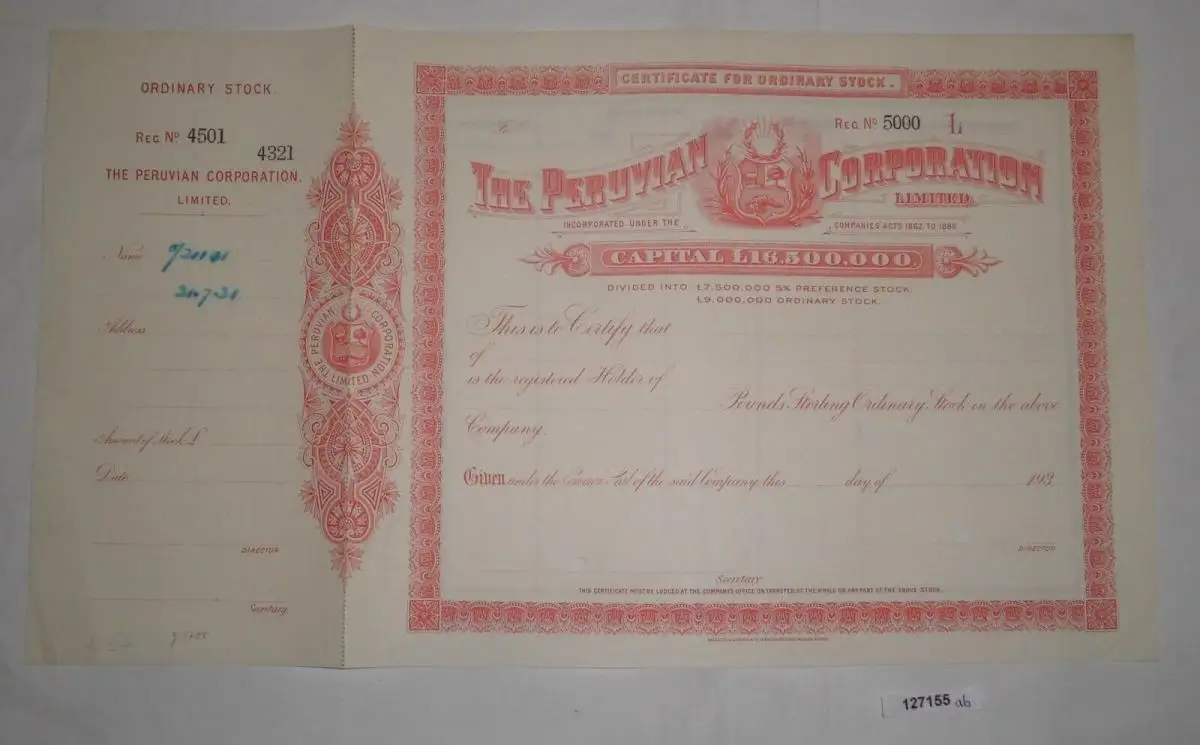 ORDINARY STOCK.
REG. Nº 4501
4321
THE PERUVIAN CORPORATION,
LIMITED.
Name
Address
Amount of Stock £
Date
DIRECTOR
Secretary.
THE PERUVIAN CORPORATION LIMITED
CERTIFICATE FOR ORDINARY STOCK.
REG. Nº 5000 L
THE PERUVIAN CORPORATION
LIMITED.
INCORPORATED UNDER THE COMPANIES' ACTS 1862 TO 1886
CAPITAL £16.500.000.
DIVIDED INTO £7.500.000 5% PREFERENCE STOCK.
£9.000.000 ORDINARY STOCK.
This is to Certify that
of
is the registered Holder of
Pounds Sterling Ordinary Stock in the above
Company.
Given under the Common Seal of the said Company this day of 193
DIRECTOR
Secretary
THIS CERTIFICATE MUST BE LODGED AT THE COMPANY'S OFFICE ON TRANSFER OF THE WHOLE OR ANY PART OF THE ABOVE STOCK.
127155 ab